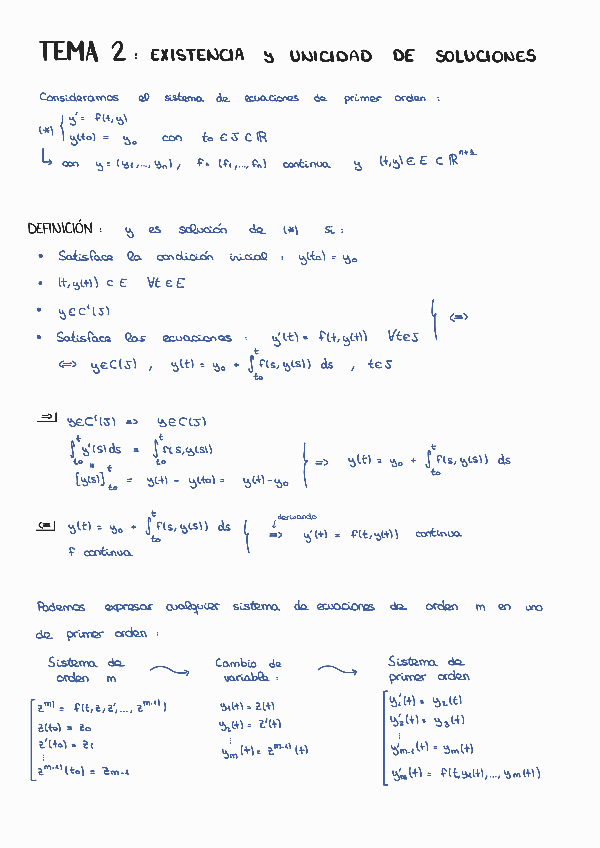 TEMA 2: EXISTENCIA y UNICIDAD DE SOLUCIONES
Consideramos el sistema de ecuaciones de primer orden:
(*) { y' = f(t,y)
y(t₀) = y₀ con t₀ ∈ J ⊂ ℝ
↳ con y = (y₁,..., yₙ), f = (f₁,..., fₙ) continua y (t,y) ∈ E ⊂ ℝⁿ⁺¹
DEFINICIÓN: y es solución de (*) si:
• Satisface la condición inicial: y(t₀) = y₀
• (t, y(t)) ⊂ E ∀t ∈ E
• y ∈ C¹(J)
• Satisface las ecuaciones: y'(t) = f(t, y(t)) ∀t ∈ J } <=>
<=> y ∈ C(J), y(t) = y₀ + ∫_{t₀}^{t} f(s, y(s)) ds, t ∈ J
=>| y ∈ C¹(J) => y ∈ C(J)
∫_{t₀}^{t} y'(s) ds = ∫_{t₀}^{t} f(s, y(s)) } => y(t) = y₀ + ∫_{t₀}^{t} f(s, y(s)) ds
"
[y(s)]_{t₀}^{t} = y(t) - y(t₀) = y(t) - y₀
<=| y(t) = y₀ + ∫_{t₀}^{t} f(s, y(s)) ds } derivando => y'(t) = f(t, y(t)) continua
f continua
Podemos expresar cualquier sistema de ecuaciones de orden m en uno
de primer orden:
Sistema de orden m → Cambio de variable: → Sistema de primer orden
z^{m)} = f(t, z, z',..., z^{m-1)}) y₁(t) = z(t) y₁'(t) = y₂(t)
z(t₀) = z₀ y₂(t) = z'(t) y₂'(t) = y₃(t)
z'(t₀) = z₁ ⋮ ⋮
⋮ yₘ(t) = z^{m-1)}(t) y'ₘ₋₁(t) = yₘ(t)
z^{m-1)}(t₀) = zₘ₋₁ yₘ'(t) = f(t, y₁(t),..., yₘ(t))